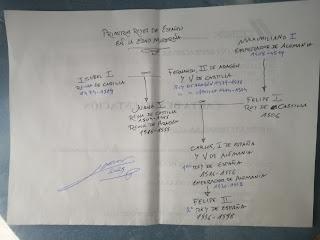 PRIMEROS REYES DE ESPAÑA
EN LA EDAD MODERNA
MAXIMILIANO I
EMPERADOR DE ALEMANIA
ISABEL I
REINA DE CASTILLA
1474-1504
FERNANDO, II DE ARAGÓN
Y V DE CASTILLA
REY DE ARAGÓN
JUANA I
REINA DE CASTILLA
REINA DE ARAGÓN
1516-1555
FELIPE I
REY DE CASTILLA
1506
CARLOS, I DE ESPAÑA
Y V DE ALEMANIA
REY DE ESPAÑA
1516-1556
EMPERADOR DE ALEMANIA
FELIPE II
2º REY DE ESPAÑA
1556-1598